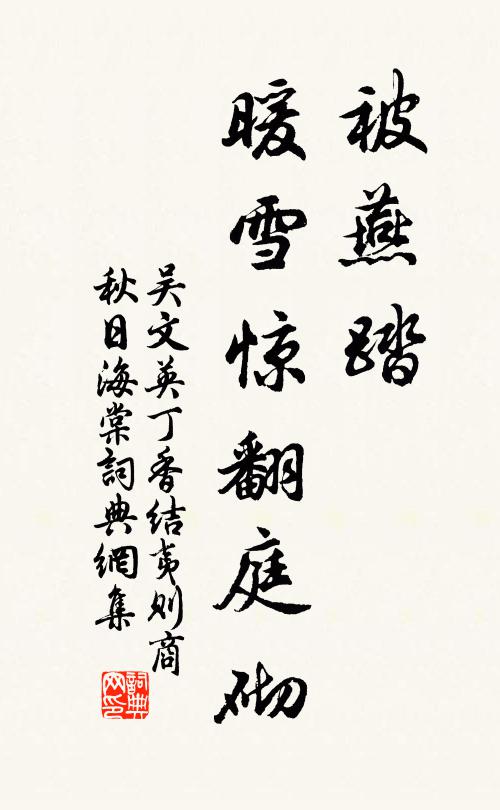 被燕踏
暖雪惊翻庭砌
吴文英丁香结夷则商
秋日海棠詞典網集
詞典
网印